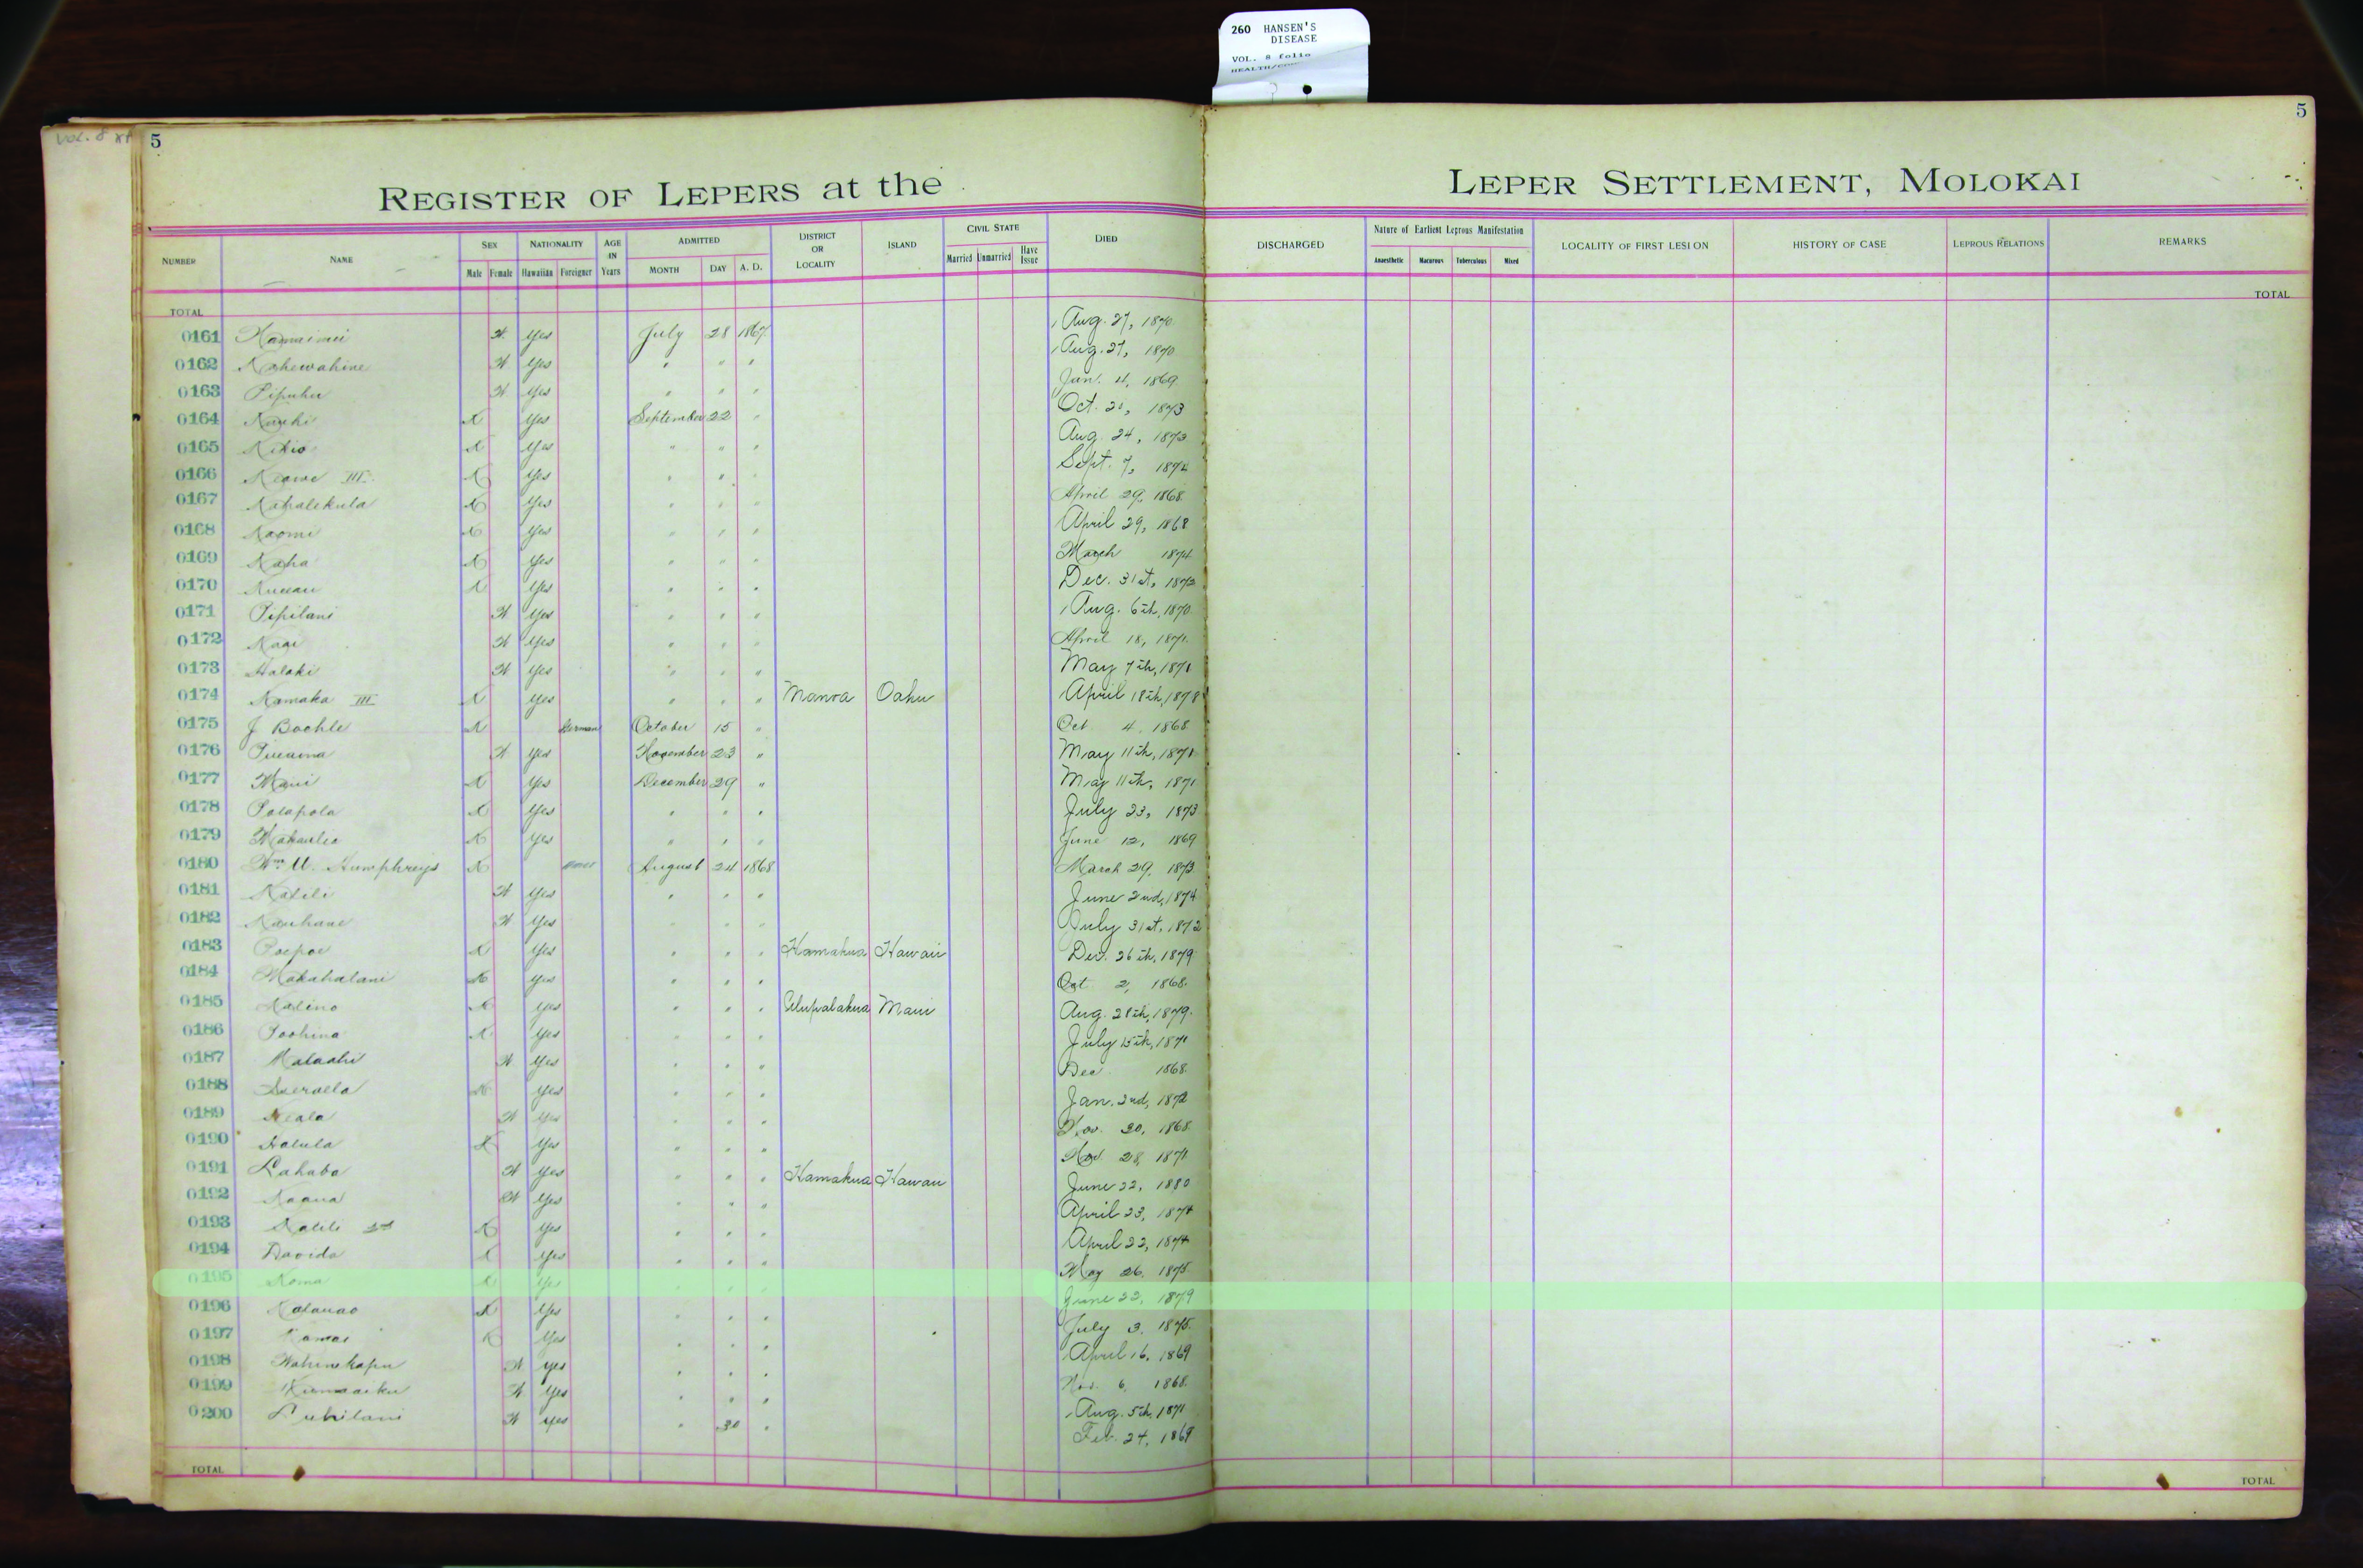 260 HANSEN'S
DISEASE
VOL. 8 folio
VOL. 8
5
5
REGISTER OF LEPERS at the LEPER SETTLEMENT, MOLOKAI
NUMBER NAME SEX Male Female NATIONALITY Hawaiian Foreigner AGE IN Years ADMITTED MONTH DAY A. D. DISTRICT OR LOCALITY ISLAND CIVIL STATE Married Unmarried Have Issue DIED DISCHARGED Nature of Earliest Leprous Manifestation Anaesthetic Macurous Tuberculous Mixed LOCALITY OF FIRST LESION HISTORY OF CASE LEPROUS RELATIONS REMARKS
TOTAL TOTAL
0161 W Yes July 28 1867 Aug. 27, 1870
0162 Kahewahine W Yes " " " Aug. 27, 1870
0163 Pipuhu W Yes " " " Jan. 4, 1869
0164 M Yes September 22 " Oct. 1873
0165 Kikio M Yes " " " Aug. 24, 1873
0166 Keawe III M Yes " " " Sept. 7, 1874
0167 Kahalekula M Yes " " " April 29, 1868
0168 Kaomi M Yes " " " April 29, 1868
0169 Kaha M Yes " " " March 1874
0170 M Yes " " " Dec. 31st, 1873
0171 Pipilani W Yes " " " Aug. 6th, 1870
0172 Kaai W Yes " " " April 18, 1871
0173 Halaki W Yes " " " May 7th, 1871
0174 Kamaka III M Yes " " " Manoa Oahu April 18th, 1878
0175 J Boehle M German October 15 " Oct 4, 1868
0176 W Yes November 23 " May 11th, 1871
0177 Maui M Yes December 29 " May 11th, 1871
0178 Polapola M Yes " " " July 23, 1873
0179 M Yes " " " June 12, 1869
0180 Wm Humphreys M August 24 1868 March 29, 1873
0181 Kalili W Yes " " " June 2nd, 1874
0182 Kauhane W Yes " " " July 31st, 1872
0183 Poepoe M Yes " " " Hamakua Hawaii Dec. 26th, 1879
0184 Makahalani M Yes " " " Oct 2, 1868
0185 Kalino M Yes " " " Ulupalakua Maui Aug. 28th, 1879
0186 Poohina M Yes " " " July 15th, 1871
0187 W Yes " " " Dec 1868
0188 M Yes " " " Jan. 2nd, 1872
0189 Keala W Yes " " " Nov. 30, 1868
0190 Halula M Yes " " " Nov. 28, 1871
0191 Lahaba W Yes " " " Hamakua Hawaii June 22, 1880
0192 Kaaua W Yes " " " April 23, 1874
0193 Kalili 2nd M Yes " " " April 22, 1874
0194 Davida M Yes " " " May 26, 1875
0195 Koma M Yes " " " June 22, 1879
0196 Kalauao M Yes " " " July 3, 1875
0197 Kamai M Yes " " " April 16, 1869
0198 Wahinekapu W Yes " " " Nov. 6, 1868
0199 W Yes " " " Aug. 5th, 1871
0200 W Yes " 30 " Feb. 24, 1869
TOTAL TOTAL